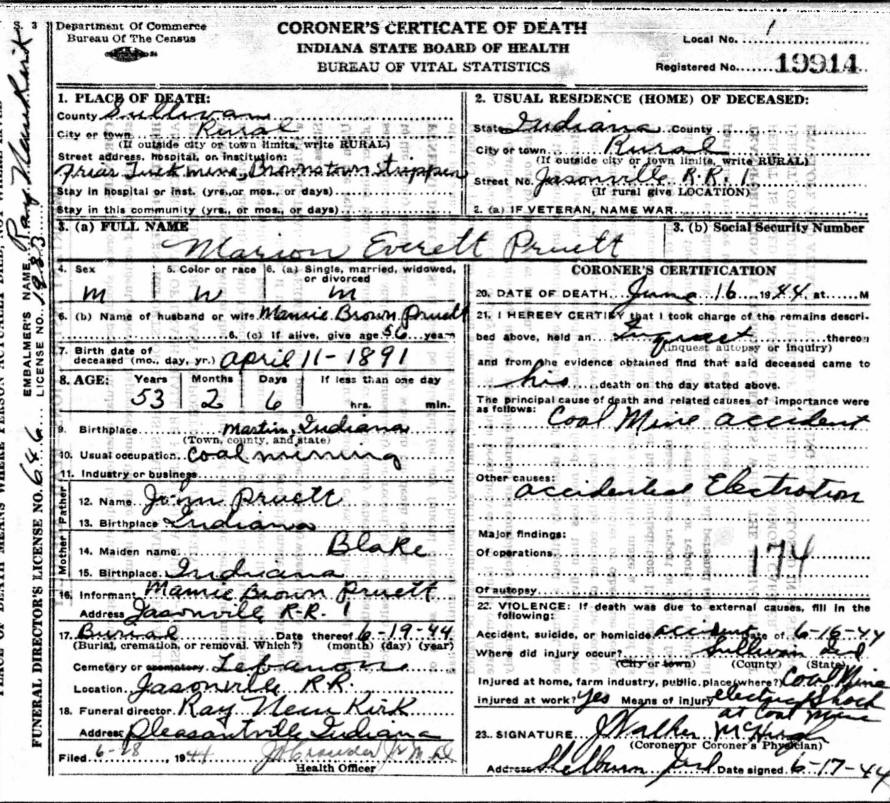 S. 3
Department Of Commerce
Bureau Of The Census
CORONER'S CERTICATE OF DEATH
INDIANA STATE BOARD OF HEALTH
BUREAU OF VITAL STATISTICS
Local No. 1
Registered No. 19914
1. PLACE OF DEATH:
County Sullivan
City or town Rural
(If outside city or town limits, write RURAL)
Street address, hospital, or institution:
Friar Tuck mine, Brownstown Strippen
Stay in hospital or inst. (yrs., or mos., or days)
Stay in this community (yrs., or mos., or days)
2. USUAL RESIDENCE (HOME) OF DECEASED:
State Indiana County
City or town Rural
(If outside city or town limits, write RURAL)
Street No. Jasonville R.R. 1
(If rural give LOCATION)
2. (a) IF VETERAN, NAME WAR
3. (a) FULL NAME
Marion Everett Pruett
3. (b) Social Security Number
4. Sex
M
5. Color or race
W
6. (a) Single, married, widowed, or divorced
M
6. (b) Name of husband or wife Mamie Brown Pruett
6. (c) If alive, give age 56 years
7. Birth date of deceased (mo., day, yr.) April 11-1891
8. AGE: Years Months Days If less than one day
53 2 6 hrs. min.
9. Birthplace Martin, Indiana
(Town, county, and state)
10. Usual occupation Coal mining
11. Industry or business
Father
12. Name John Pruett
13. Birthplace Indiana
Mother
14. Maiden name Blake
15. Birthplace Indiana
16. Informant Mamie Brown Pruett
Address Jasonville R.R. 1
17. Burial Date thereof 6-19-44
(Burial, cremation, or removal. Which?) (month) (day) (year)
Cemetery or crematory Lebanon
Location Jasonville R.R.
18. Funeral director Ray Newkirk
Address Pleasantville Indiana
Filed 6-18, 1944
Health Officer
CORONER'S CERTIFICATION
20. DATE OF DEATH June 16 1944 at M
21. I HEREBY CERTIFY that I took charge of the remains descri-
bed above, held an Inquest thereon
(inquest autopsy or inquiry)
and from the evidence obtained find that said deceased came to
his death on the day stated above.
The principal cause of death and related causes of importance were
as follows: Coal Mine accident
Other causes:
accidental Electrotion
Major findings:
Of operations 174
Of autopsy
22. VIOLENCE: If death was due to external causes, fill in the
following:
Accident, suicide, or homicide accident Date of 6-16-44
Where did injury occur? Sullivan Ind
(City or town) (County) (State)
Injured at home, farm industry, public place (where?) Coal Mine
injured at work? Yes Means of injury electric Shock
at Coal Mine
23. SIGNATURE J Walker
(Coroner or Coroner's Physician)
Address Shelburn Ind Date signed 6-17-44
EMBALMER'S NAME Ray Newkirk
LICENSE NO. 1983
FUNERAL DIRECTOR'S LICENSE NO. 646